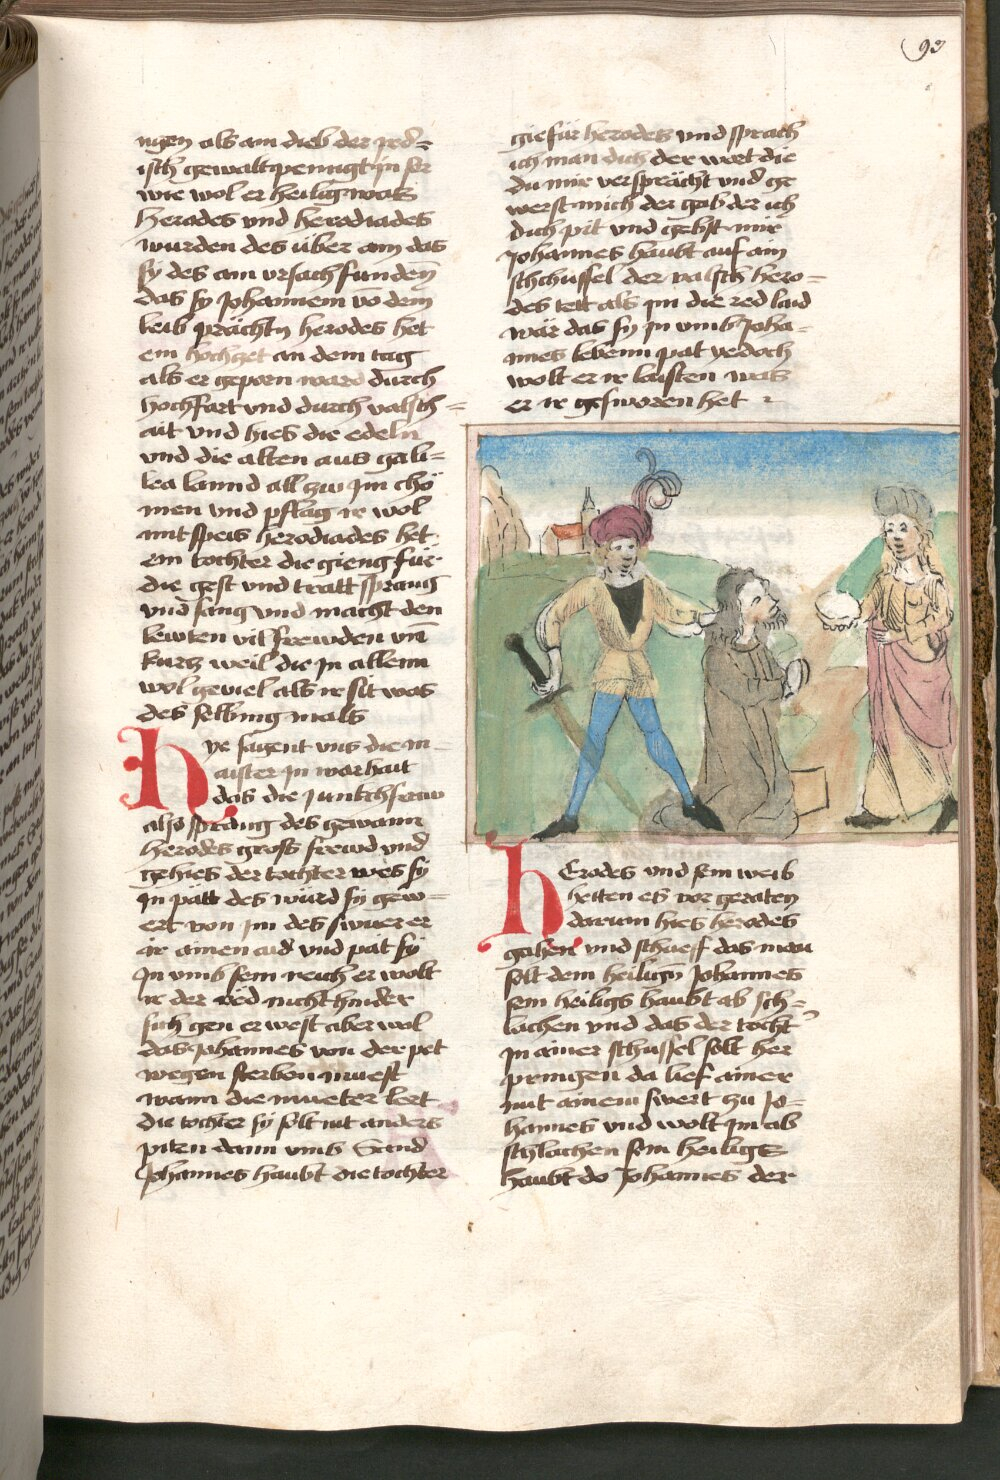 93
mgen als am dieb der jrd=
isch gewalt penigt jn ser
wie wol er heilig was
Herodes und herodiades
wurden des uber am das
sy des am ursach funden
das sy Johannem vo dem
leib prächtn herodes het
ein hochzet an dem tag
als er geporn ward durch
hochfart und durch valsch=
ait und hies die edeln
und die alten aus gali=
lea lannd all zw jm chö
men und pflag ir wol
mit speis herodiades het
ein tochter die gieng für
die gest und tratt sprang
und sang und macht den
lewten vil frewden vn
kurtz weil die jn allenn
wol geviel als ir sit was
des selbing mals
Hye sagent uns die m
aister jn warhait
das die junkchfraw
also sprang des gewann
Herodes gross frewd und
gehies der tochter wes sy
jn pätt des würd sy gew=
ert von jm des swuer er
ir ainen aid und pat sy
jn umb sein reich er wolt
ir der red nicht hinder
sich gen er west aber wol
das Johannes von der pet
wegen sterben muest
wann die mueter lert
die tochter sy solt nit anders
piten dann umb Sand
Johannes haubt die tochter
gie für herodes und sprach
ich man dich der wort die
du mir versprächt und ge
werst mich der gab der ich
dich pit und gebst mir
Johannes haubt auf ain
schchussel der valsch hero=
des tett als jm die red laid
wär das sy jn umb Joha=
nnes lebenn pat yedoch
wolt er ir laisten was
er ir gesworen het
HErodes und sein weib
hetten es vor geraten
darum hies herodes
gahen und schueff das man
solt dem heilign Johannes
sein heiligs haubt ab sch=
lachen und das der tocht
jn ainer schussel solt her
pringen da lief ainer
mit ainem swert zu Jo=
hannes und wolt jm ab
schlachen sein heiligs
haubt do Johannes der